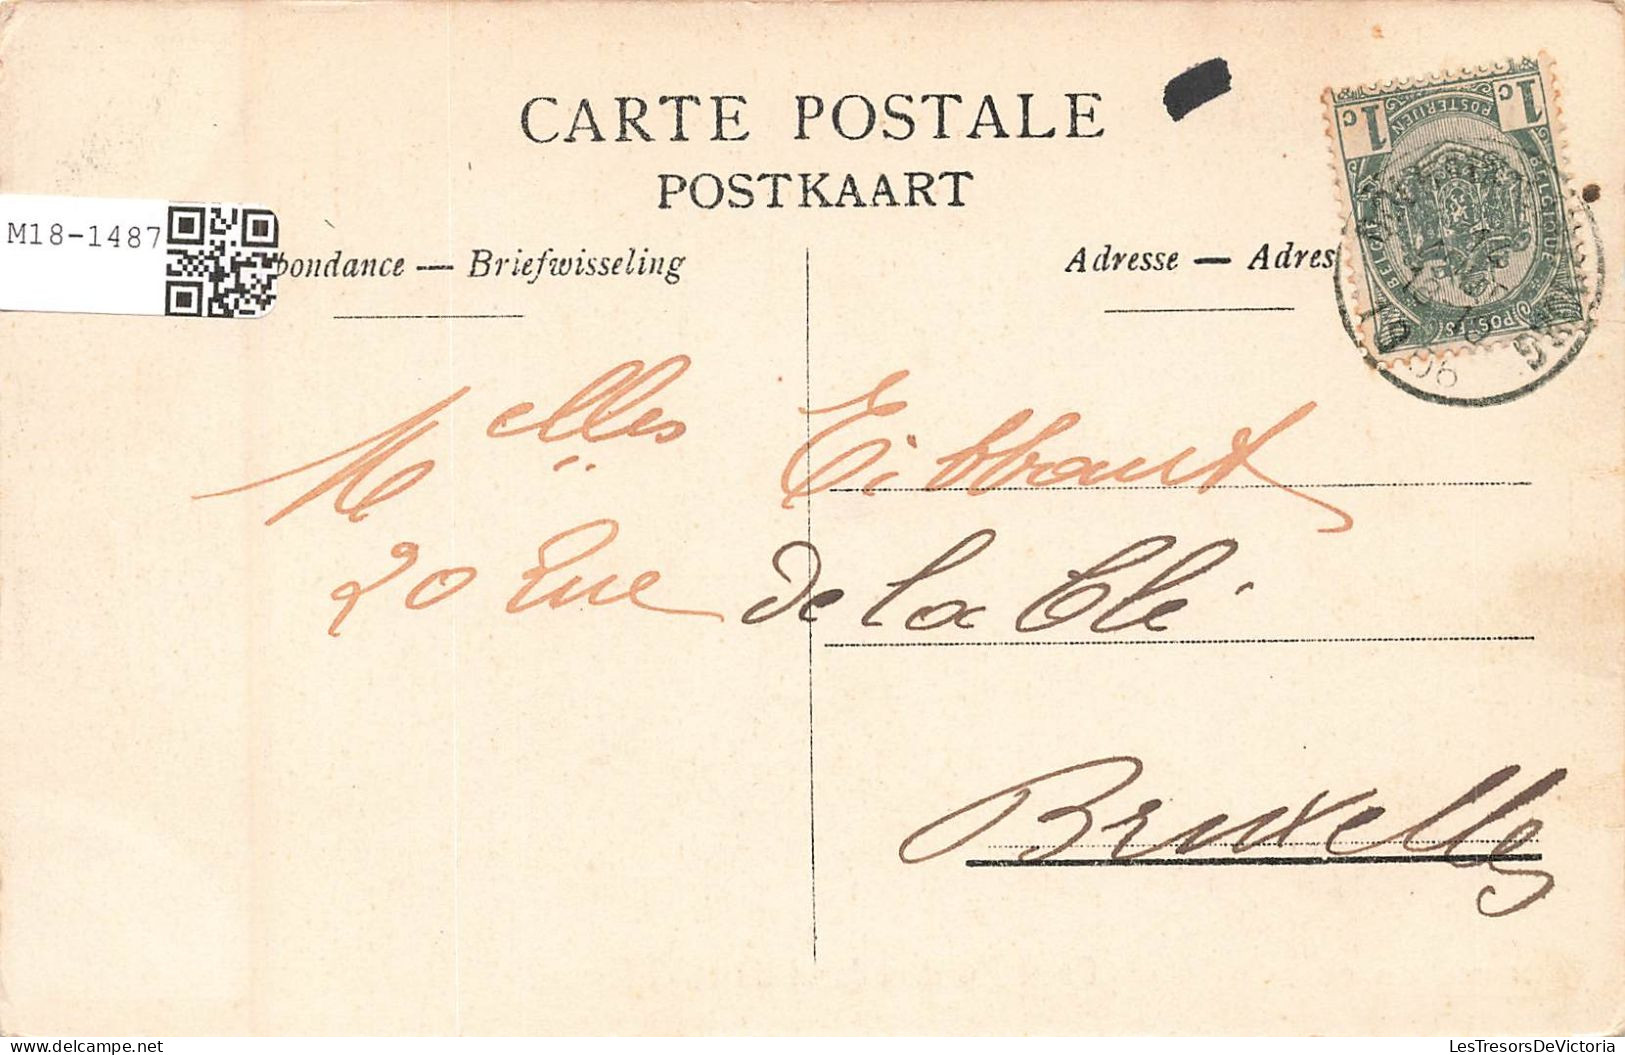 CARTE POSTALE
POSTKAART
M18-1487
pondance — Briefwisseling
Adresse — Adres
1c 1c
POSTERIJEN
BELGIQUE
POSTES
Melles Eibbaut
20 Rue de la Clé
Bruxelles
LesTresorsDeVictoria